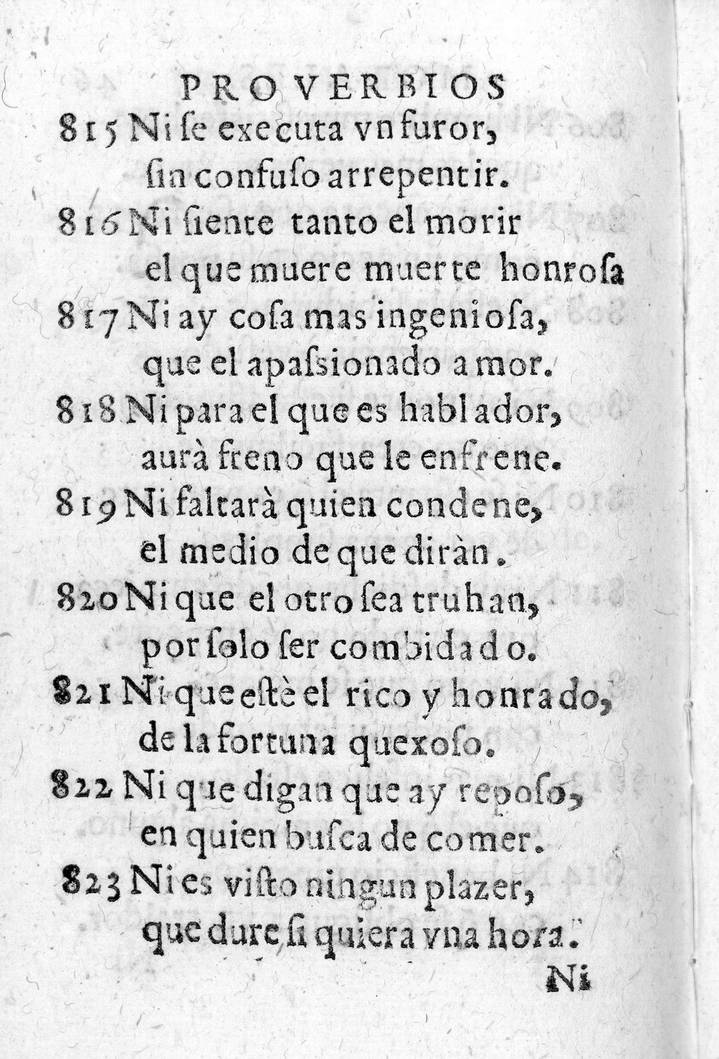 PROVERBIOS
815 Ni ſe executa vn furor,
ſin confuſo arrepentir.
816 Ni ſiente tanto el morir
el que muere muerte honroſa
817 Ni ay coſa mas ingenioſa,
que el apaſsionado amor.
818 Ni para el que es hablador,
aurà freno que le enfrene.
819 Ni faltarà quien condene,
el medio de que diràn.
820 Ni que el otro ſea truhan,
por ſolo ſer combidado.
821 Ni que eſtè el rico y honrado,
de la fortuna quexoſo.
822 Ni que digan que ay repoſo,
en quien buſca de comer.
823 Ni es viſto ningun plazer,
que dure ſi quiera vna hora.
Ni